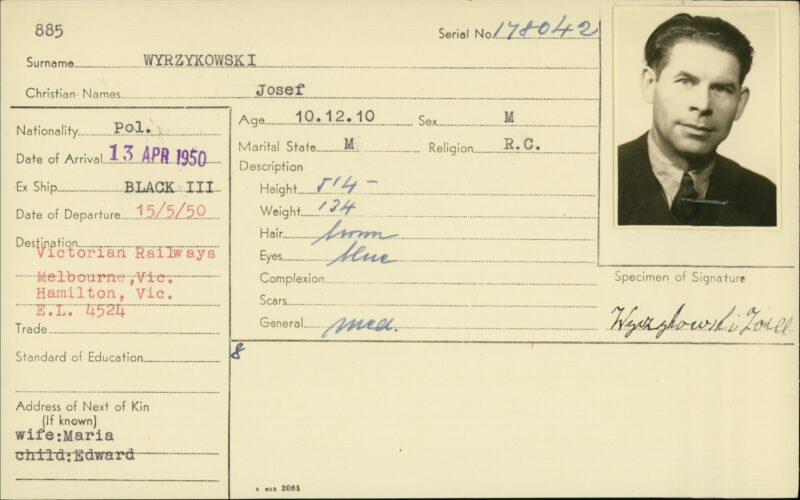 885
Serial No. 178042
Surname WYRZYKOWSKI
Christian Names Josef
Nationality Pol.
Date of Arrival 13 APR 1950
Ex Ship BLACK III
Date of Departure 15/5/50
Destination
Victorian Railways
Melbourne,Vic.
Hamilton, Vic.
E.L. 4524
Trade
Standard of Education
Address of Next of Kin
(If known)
wife:Maria
child:Edward
Age 10.12.10 Sex M
Marital State M Religion R.C.
Description
Height 5'4"
Weight 134
Hair brown
Eyes blue
Complexion
Scars
General med.
8
Specimen of Signature
Wyrzykowski Josef
2085